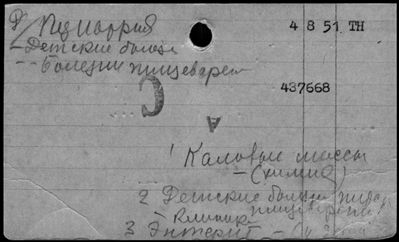 4 8 51 TH
– Детские болезн
-- Болезни пищеварен
437668
С
А
1 Каловые массы
– (химия)
2 Детские болезн пищ
Клиник
3 Энтерит –